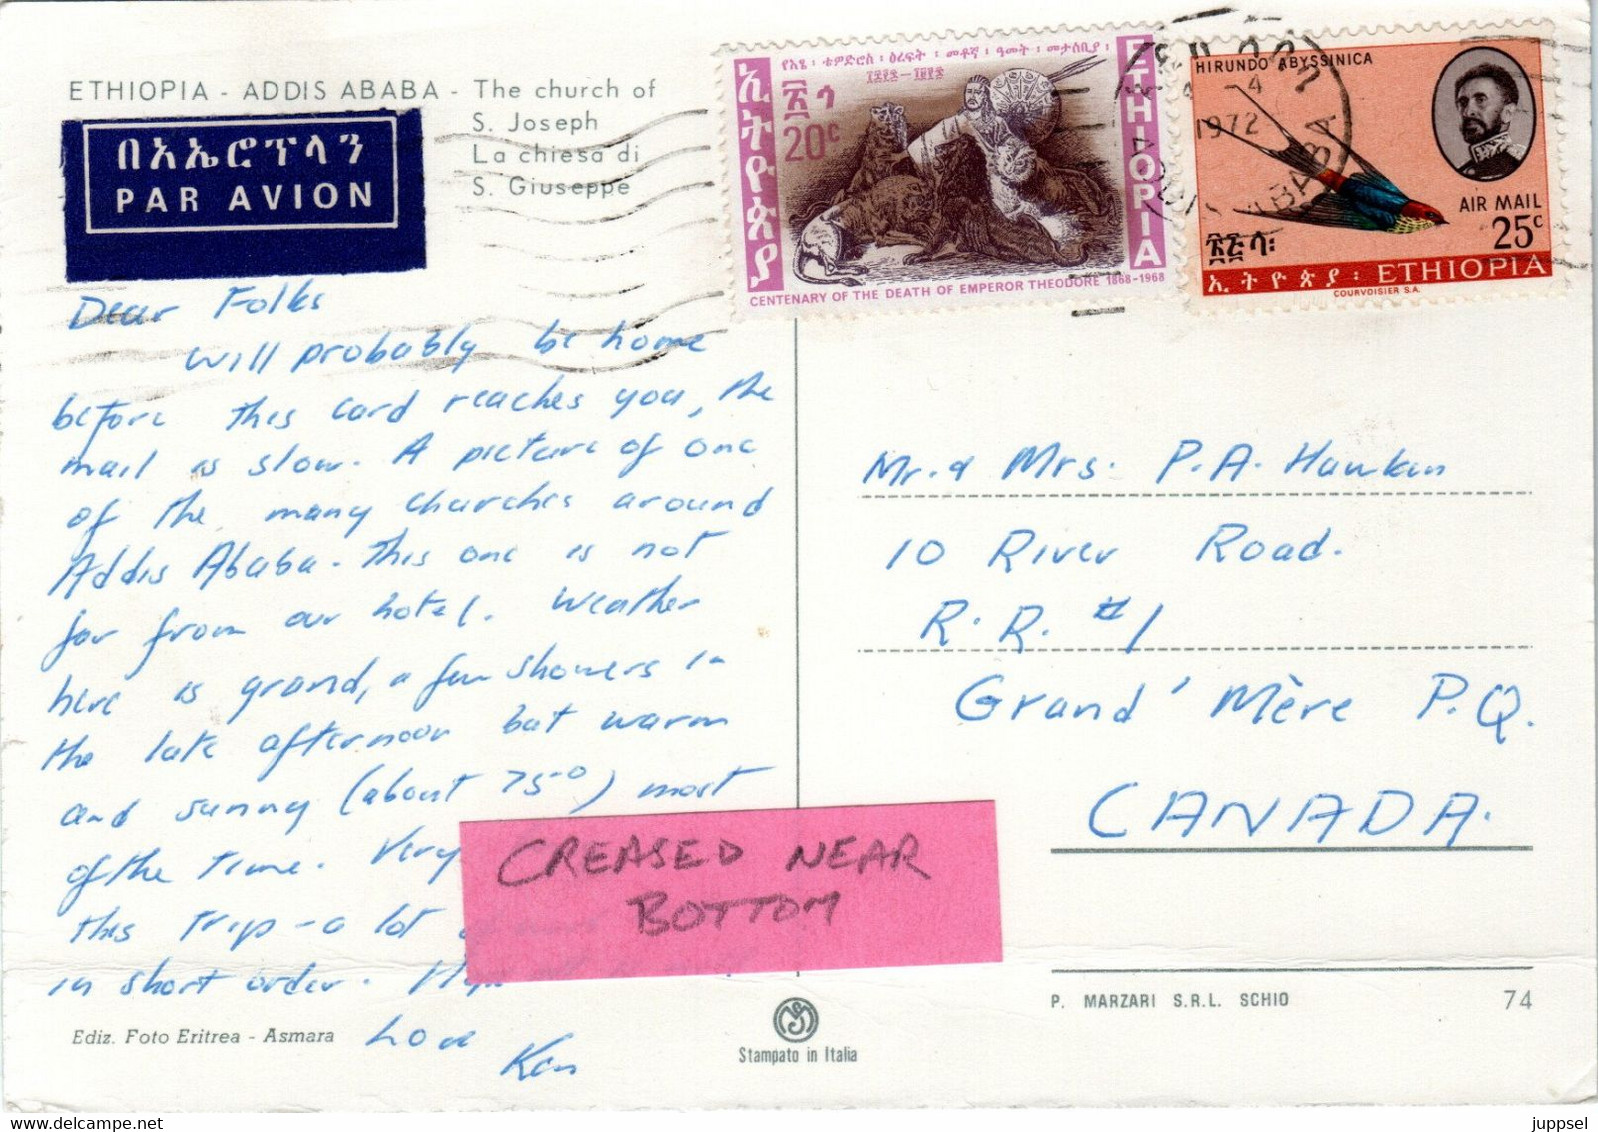 ETHIOPIA - ADDIS ABABA - The church of
S. Joseph
La chiesa di
S. Giuseppe
በአኤሮፕላን
PAR AVION
ኢትዮጵያ
20c
ETHIOPIA
CENTENARY OF THE DEATH OF EMPEROR THEODORE 1868-1968
HIRUNDO ABYSSINICA
AIR MAIL
25c
ኢትዮጵያ፡ ETHIOPIA
COURVOISIER S.A.
4
1972
ABABA
Dear Folks
will probably be home
before this card reaches you, the
mail is slow. A picture of one
of the many churches around
Addis Ababa. This one is not
far from our hotel. Weather
here is grand, a few showers in
the late afternoon but warm
and sunny (about 75°) most
of the time. Very
this trip - a lot
in short order.
Love
Ken
CREASED NEAR
BOTTOM
Mr. & Mrs. P.A. Hawken
10 River Road.
R.R. #1
Grand' Mère P.Q.
CANADA.
Ediz. Foto Eritrea - Asmara
Stampato in Italia
P. MARZARI S.R.L. SCHIO 74
juppsel